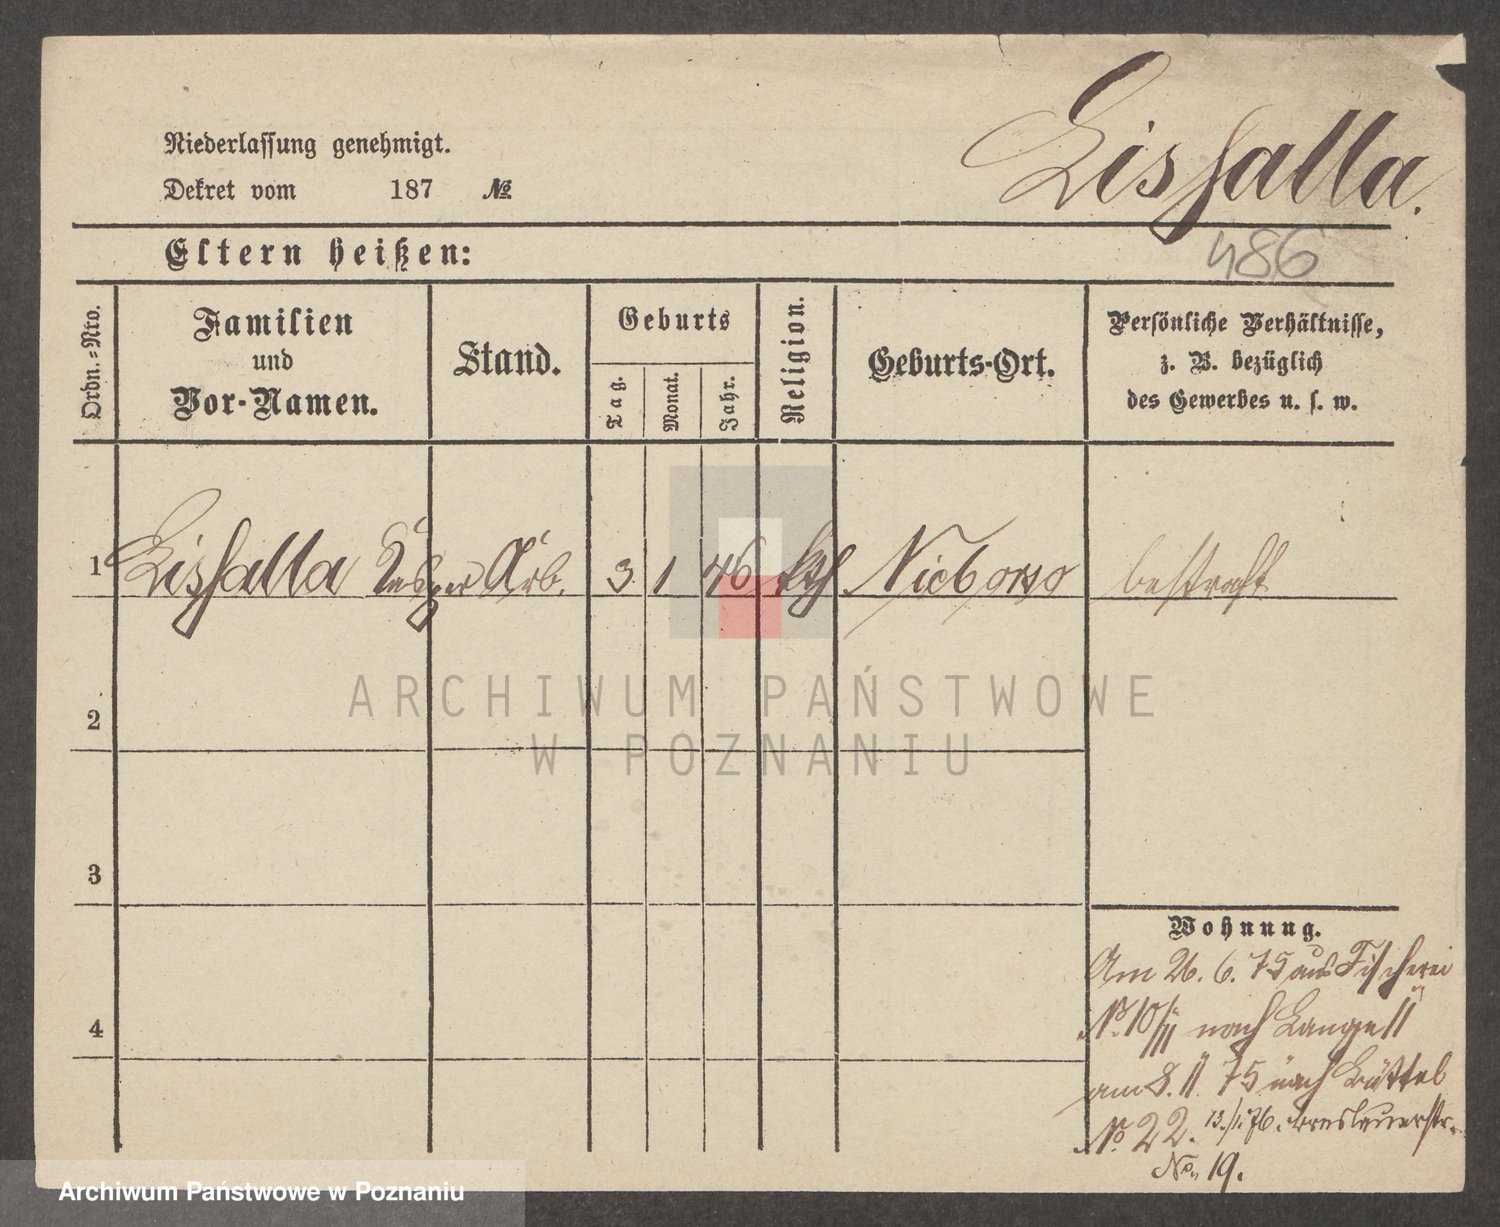 Lissalla.
486
Niederlassung genehmigt.
Dekret vom 187 №
Eltern heißen:
Ordn.=Nro.
Familien
und
Vor-Namen.
Stand.
Geburts
Tag.
Monat.
Jahr.
Religion.
Geburts-Ort.
Persönliche Verhältnisse,
z. B. bezüglich
des Gewerbes u. s. w.
1 Lissalla Kasper Arb. 3. 1 46 kth Nieborso bestraft
2
3
4
Wohnung.
Am 26. 6. 75 aus Fischerei
No. 10/III nach Lange 11
am 8. 11. 75 nach Büttel
No 22. 13./1. 76. Breslauerstr.
No. 19.
ARCHIWUM PAŃSTWOWE
W POZNANIU
Archiwum Państwowe w Poznaniu